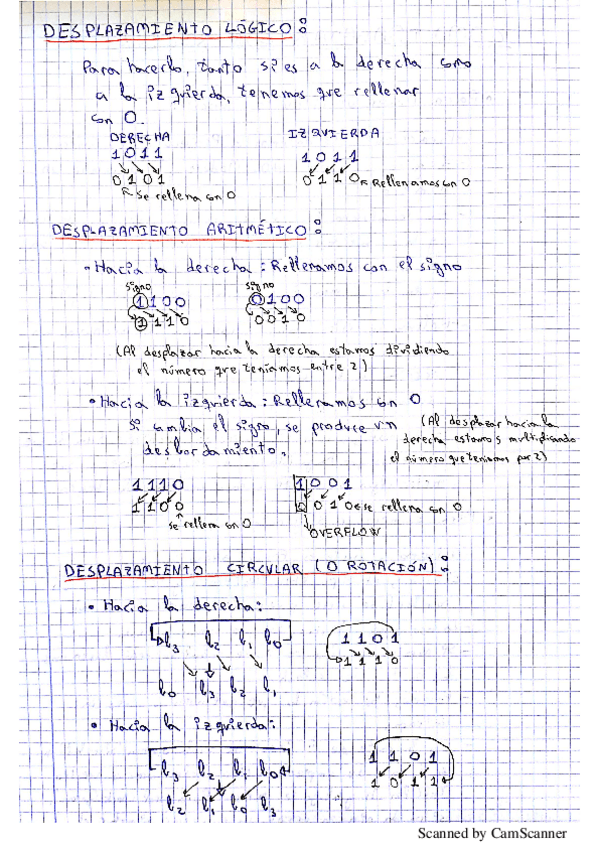 DESPLAZAMIENTO LÓGICO:
Para hacerlo, tanto si es a la derecha como
a la izquierda, tenemos que rellenar
con 0.
DERECHA
1 0 1 1
0 1 0 1
Se rellena con 0
IZQUIERDA
1 0 1 1
0 1 1 0 Rellenamos con 0
DESPLAZAMIENTO ARITMÉTICO:
• Hacia la derecha: Rellenamos con el signo
signo
1 1 0 0
1 1 1 0
signo
0 1 0 0
0 0 1 0
(Al desplazar hacia la derecha estamos dividiendo
el número que teníamos entre 2)
• Hacia la izquierda: Rellenamos con 0
Si cambia el signo, se produce un
desbordamiento.
(Al desplazar hacia la
derecha estamos multiplicando
el número que teníamos por 2)
1 1 1 0
1 1 0 0
se rellena con 0
1 0 0 1
0 0 1 0 se rellena con 0
OVERFLOW
DESPLAZAMIENTO CIRCULAR (O ROTACIÓN):
• Hacia la derecha:
b3 b2 b1 b0
b0 b3 b2 b1
1 1 0 1
1 1 1 0
• Hacia la izquierda:
b3 b2 b1 b0
b2 b1 b0 b3
1 1 0 1
1 0 1 1
Scanned by CamScanner